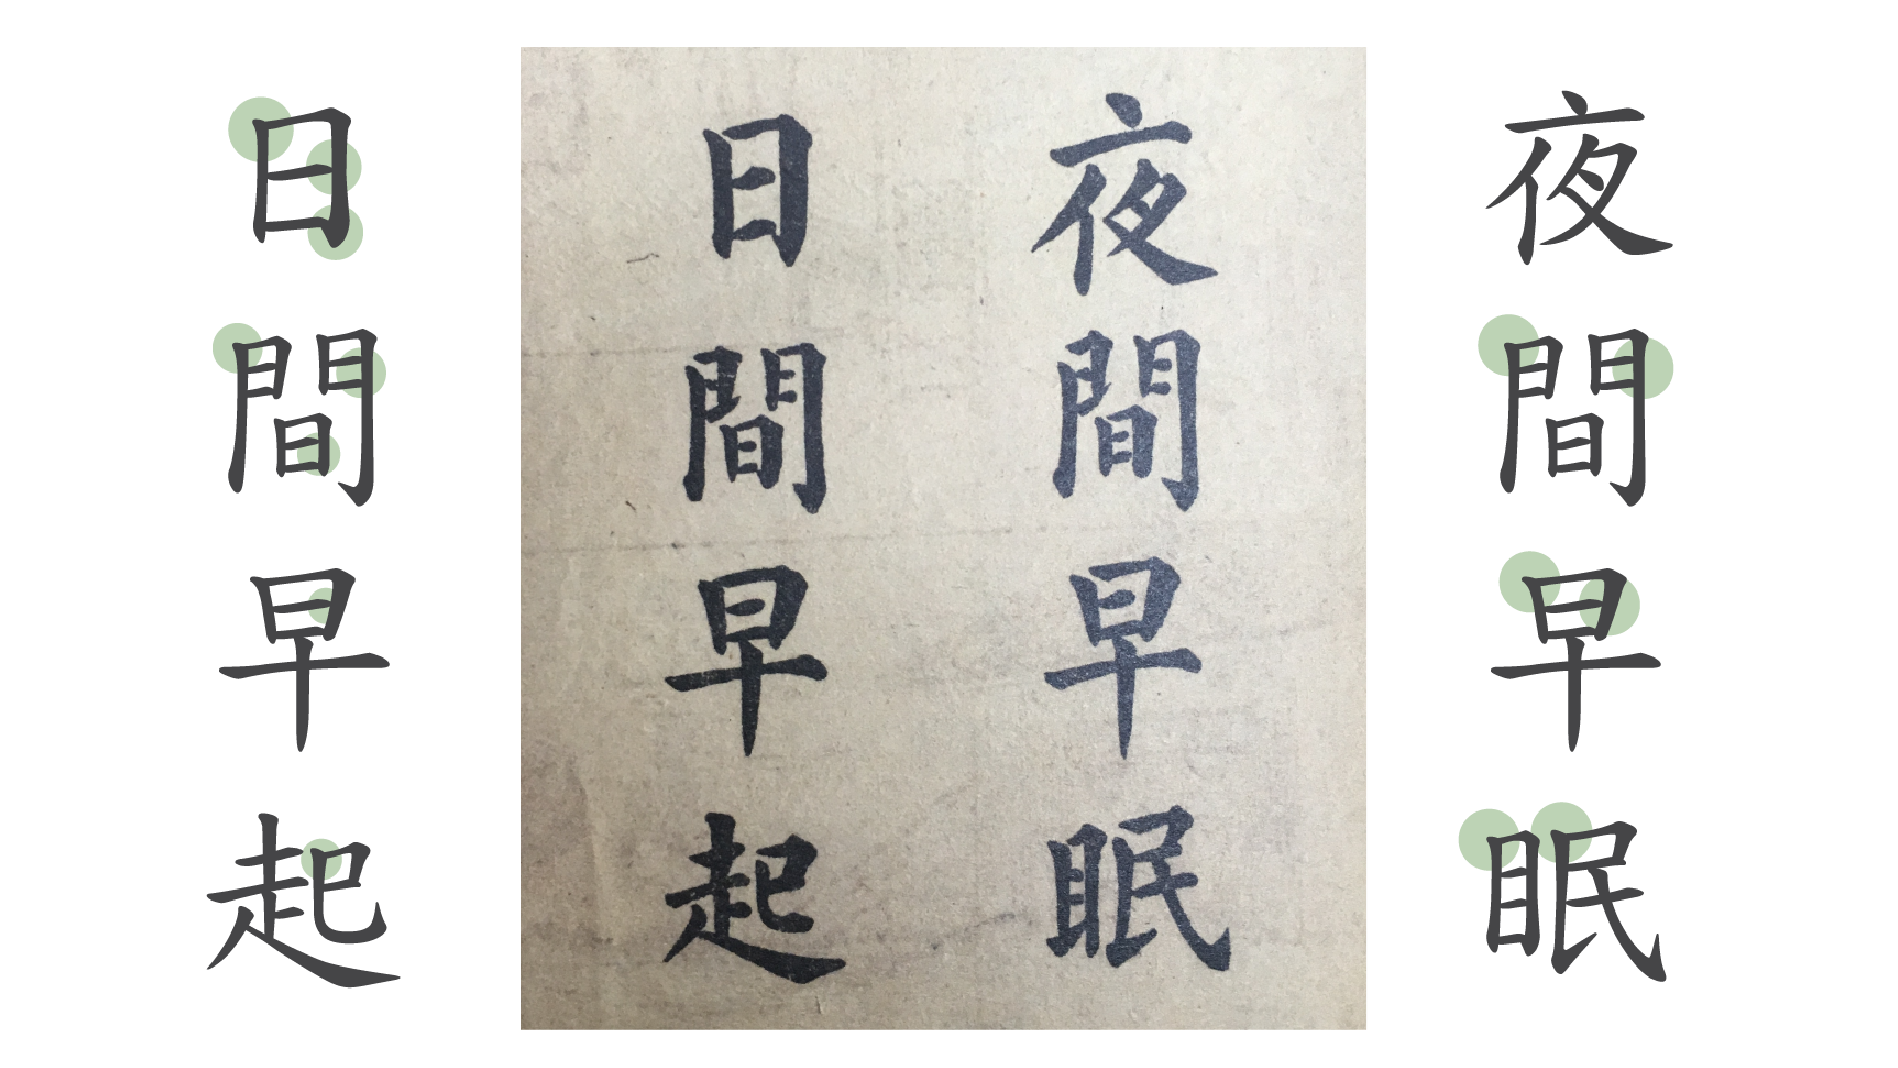 夜間早眠
夜間早眠
日間早起
日間早起